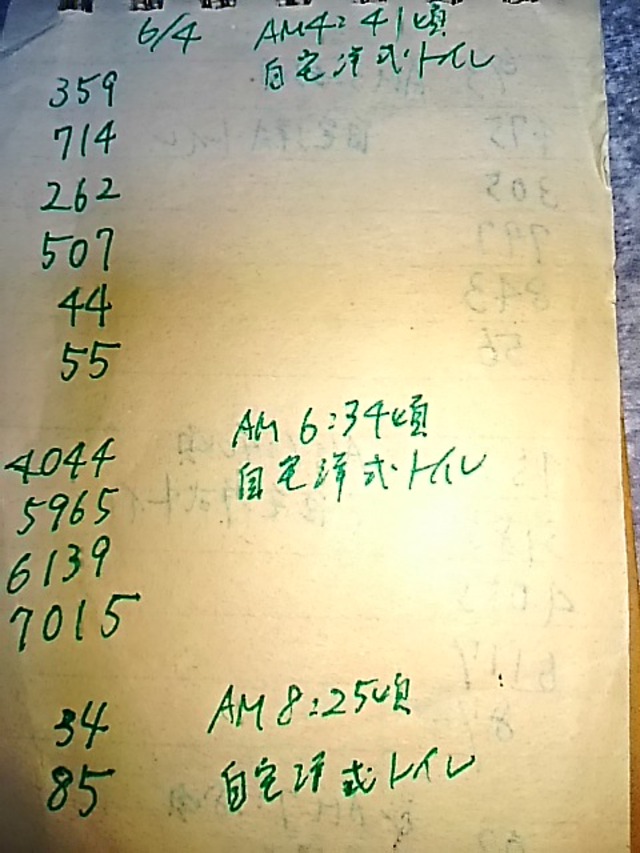 6/4 AM4:41頃
自宅洋式トイレ
359
714
262
507
44
55
AM 6:34頃
自宅洋式トイレ
4044
5965
6139
7015
AM 8:25頃
自宅洋式トイレ
34
85